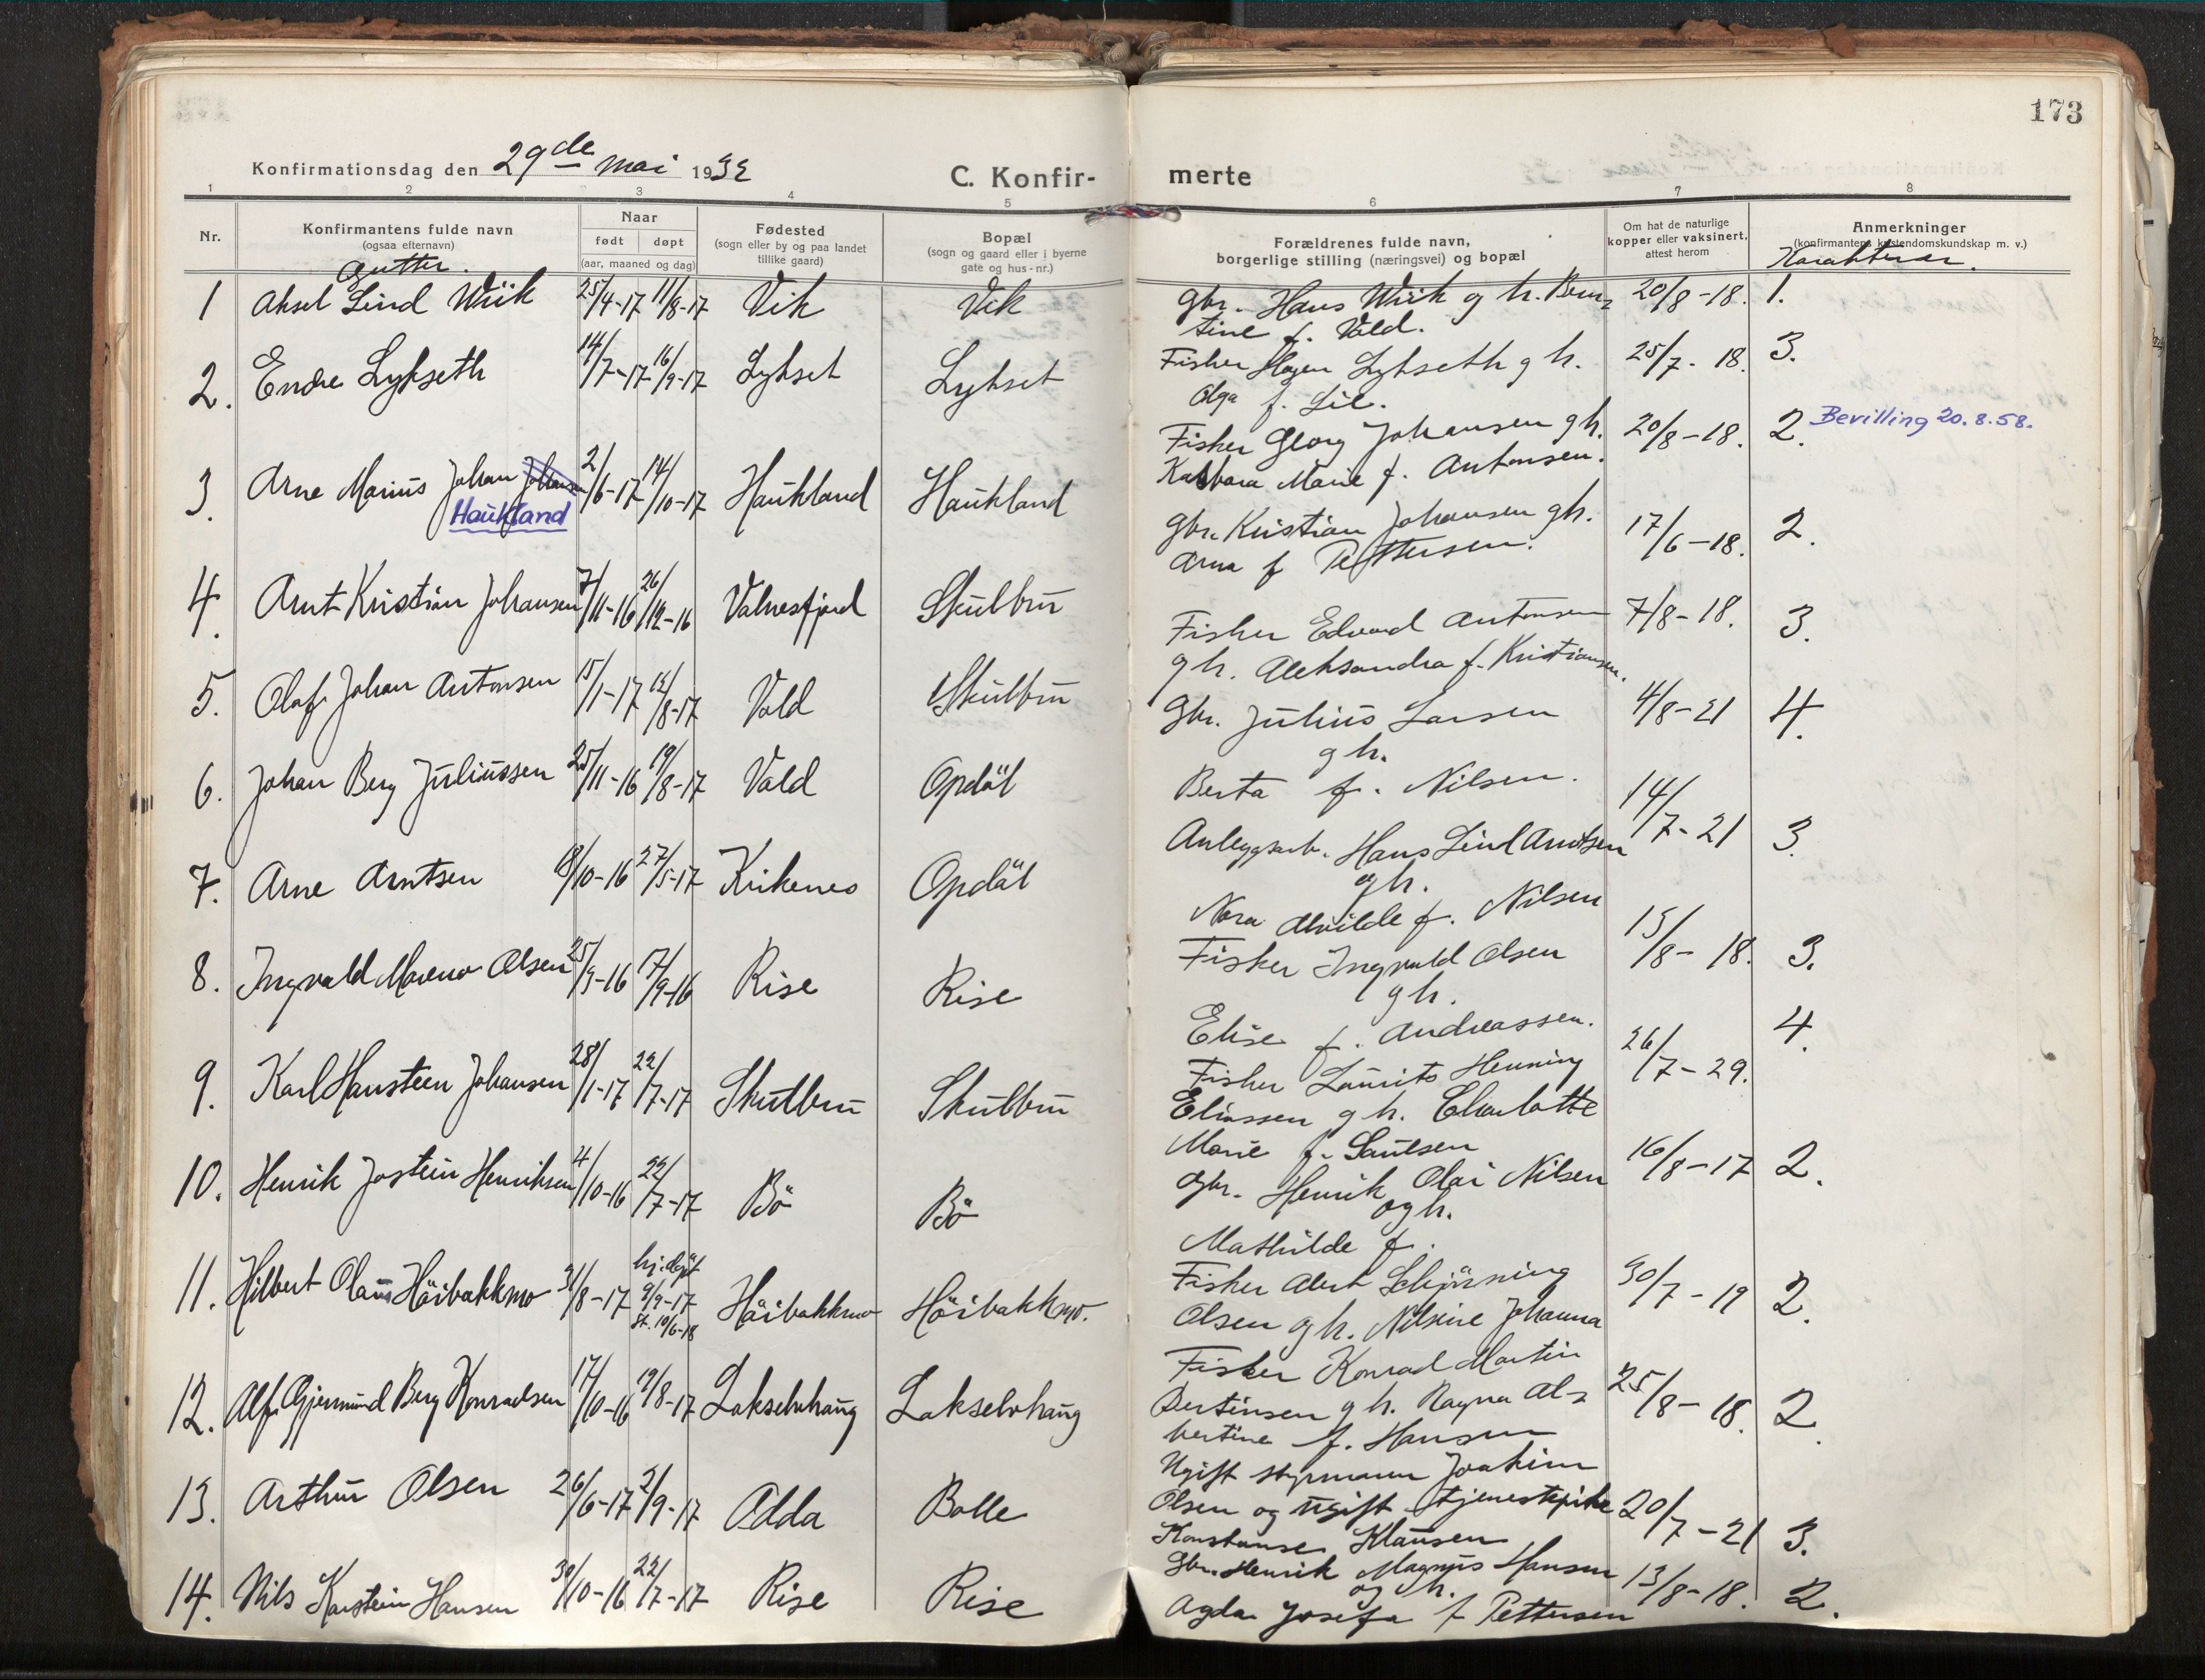 173
Konfirmationsdag den 29de mai 1932
C. Konfirmerte
1 2 3 4 5 6 7 8
Nr.
Konfirmantens fulde navn
(ogsaa efternavn)
Gutter.
Naar
født døpt
(aar, maaned og dag)
Fødested
(sogn eller by og paa landet
tillike gaard)
Bopæl
(sogn og gaard eller i byerne
gate og hus-nr.)
Forældrenes fulde navn,
borgerlige stilling (næringsvei) og bopæl
Om hat de naturlige
kopper eller vaksinert,
attest herom
Anmerkninger
(konfirmantens kristendomskundskap m. v.)
Karakterer.
1 Aksel Lind Wiik 25/4-17 11/8-17 Vik Vik
Gbr. Hans Wiik og h. Bern- 20/8-18. 1.
tine f. Vold.
2. Endre Lykseth 14/7-17 16/9-17 Lykset Lykset
Fisker Hagen Lykseth g h. 25/7-18. 3.
Olga f. Lil.
3. Arne Marius Johan Johansen 2/6-17 14/10-17 Haukland Haukland
Haukland
Fisker Georg Johansen g h. 20/8-18. 2. Bevilling 20.8.58.
Marie f. Antonsen.
4. Arnt Kristian Johansen 7/11-16 26/12-16 Valnesfjord Skulbru
Gbr. Kristian Johansen gh. 17/6-18. 2.
Arna f Pettersen.
5. Olaf Johan Antonsen 15/1-17 12/8-17 Vold Skulbru
Fisker Edvard Antonsen 7/8-18. 3.
g h. Aleksandra f. Kristiansen.
6. Johan Berg Juliussen 25/11-16 19/8-17 Vold Opdal
Gbr. Julius Larsen 4/8-21 4.
g h.
Berta f. Nilsen.
7. Arne Arntsen 8/10-16 27/5-17 Kirkenes Opdal
Anleggsarb. Hans Lind Arntsen 14/7-21 3.
g h.
Nora Alvilde f. Nilsen
8. Ingvald Moreno Olsen 25/3-16 17/9-16 Rise Rise
Fisker Ingvald Olsen 15/8-18. 3.
g h.
Elise f. Andreassen.
9. Karl Hansteen Johansen 28/1-17 22/7-17 Skulbru Skulbru
Fisker Laurits Henning 26/7-29. 4.
Eliassen g h. Charlotte
Marie f. Paulsen
10. Henrik Jostein Henriksen 4/10-16 22/7-17 Bö Bö
Gbr. Henrik Olai Nilsen 16/8-17 2.
og h.
Mathilde f.
11. Hilbert Olaus Höibakkmo 31/8-17 hj.døpt 9/9-17 st. 10/6-18 Höibakkmo Höibakkmo.
Fisker Albert Schjörning 30/7-19 2.
Olsen og h. Nilsine Johanna
12. Alf Gjermund Berg Konradsen 17/10-16 19/8-17 Lakselvhaug Lakselvhaug
Fisker Konrad Martin
Bertinsen g h. Ragna Al- 25/8-18. 2.
bertine f. Hansen
13. Arthur Olsen 26/6-17 2/9-17 Adda Bolle
Ugift styrmann Joakim
Olsen og ugift tjenestepike 20/7-21 3.
Konstanse Klausen
14. Nils Karstein Hansen 30/10-16 22/7-17 Rise Rise
Gbr. Henrik Magnus Hansen 13/8-18. 2.
og h.
Agda Josefa f Pettersen